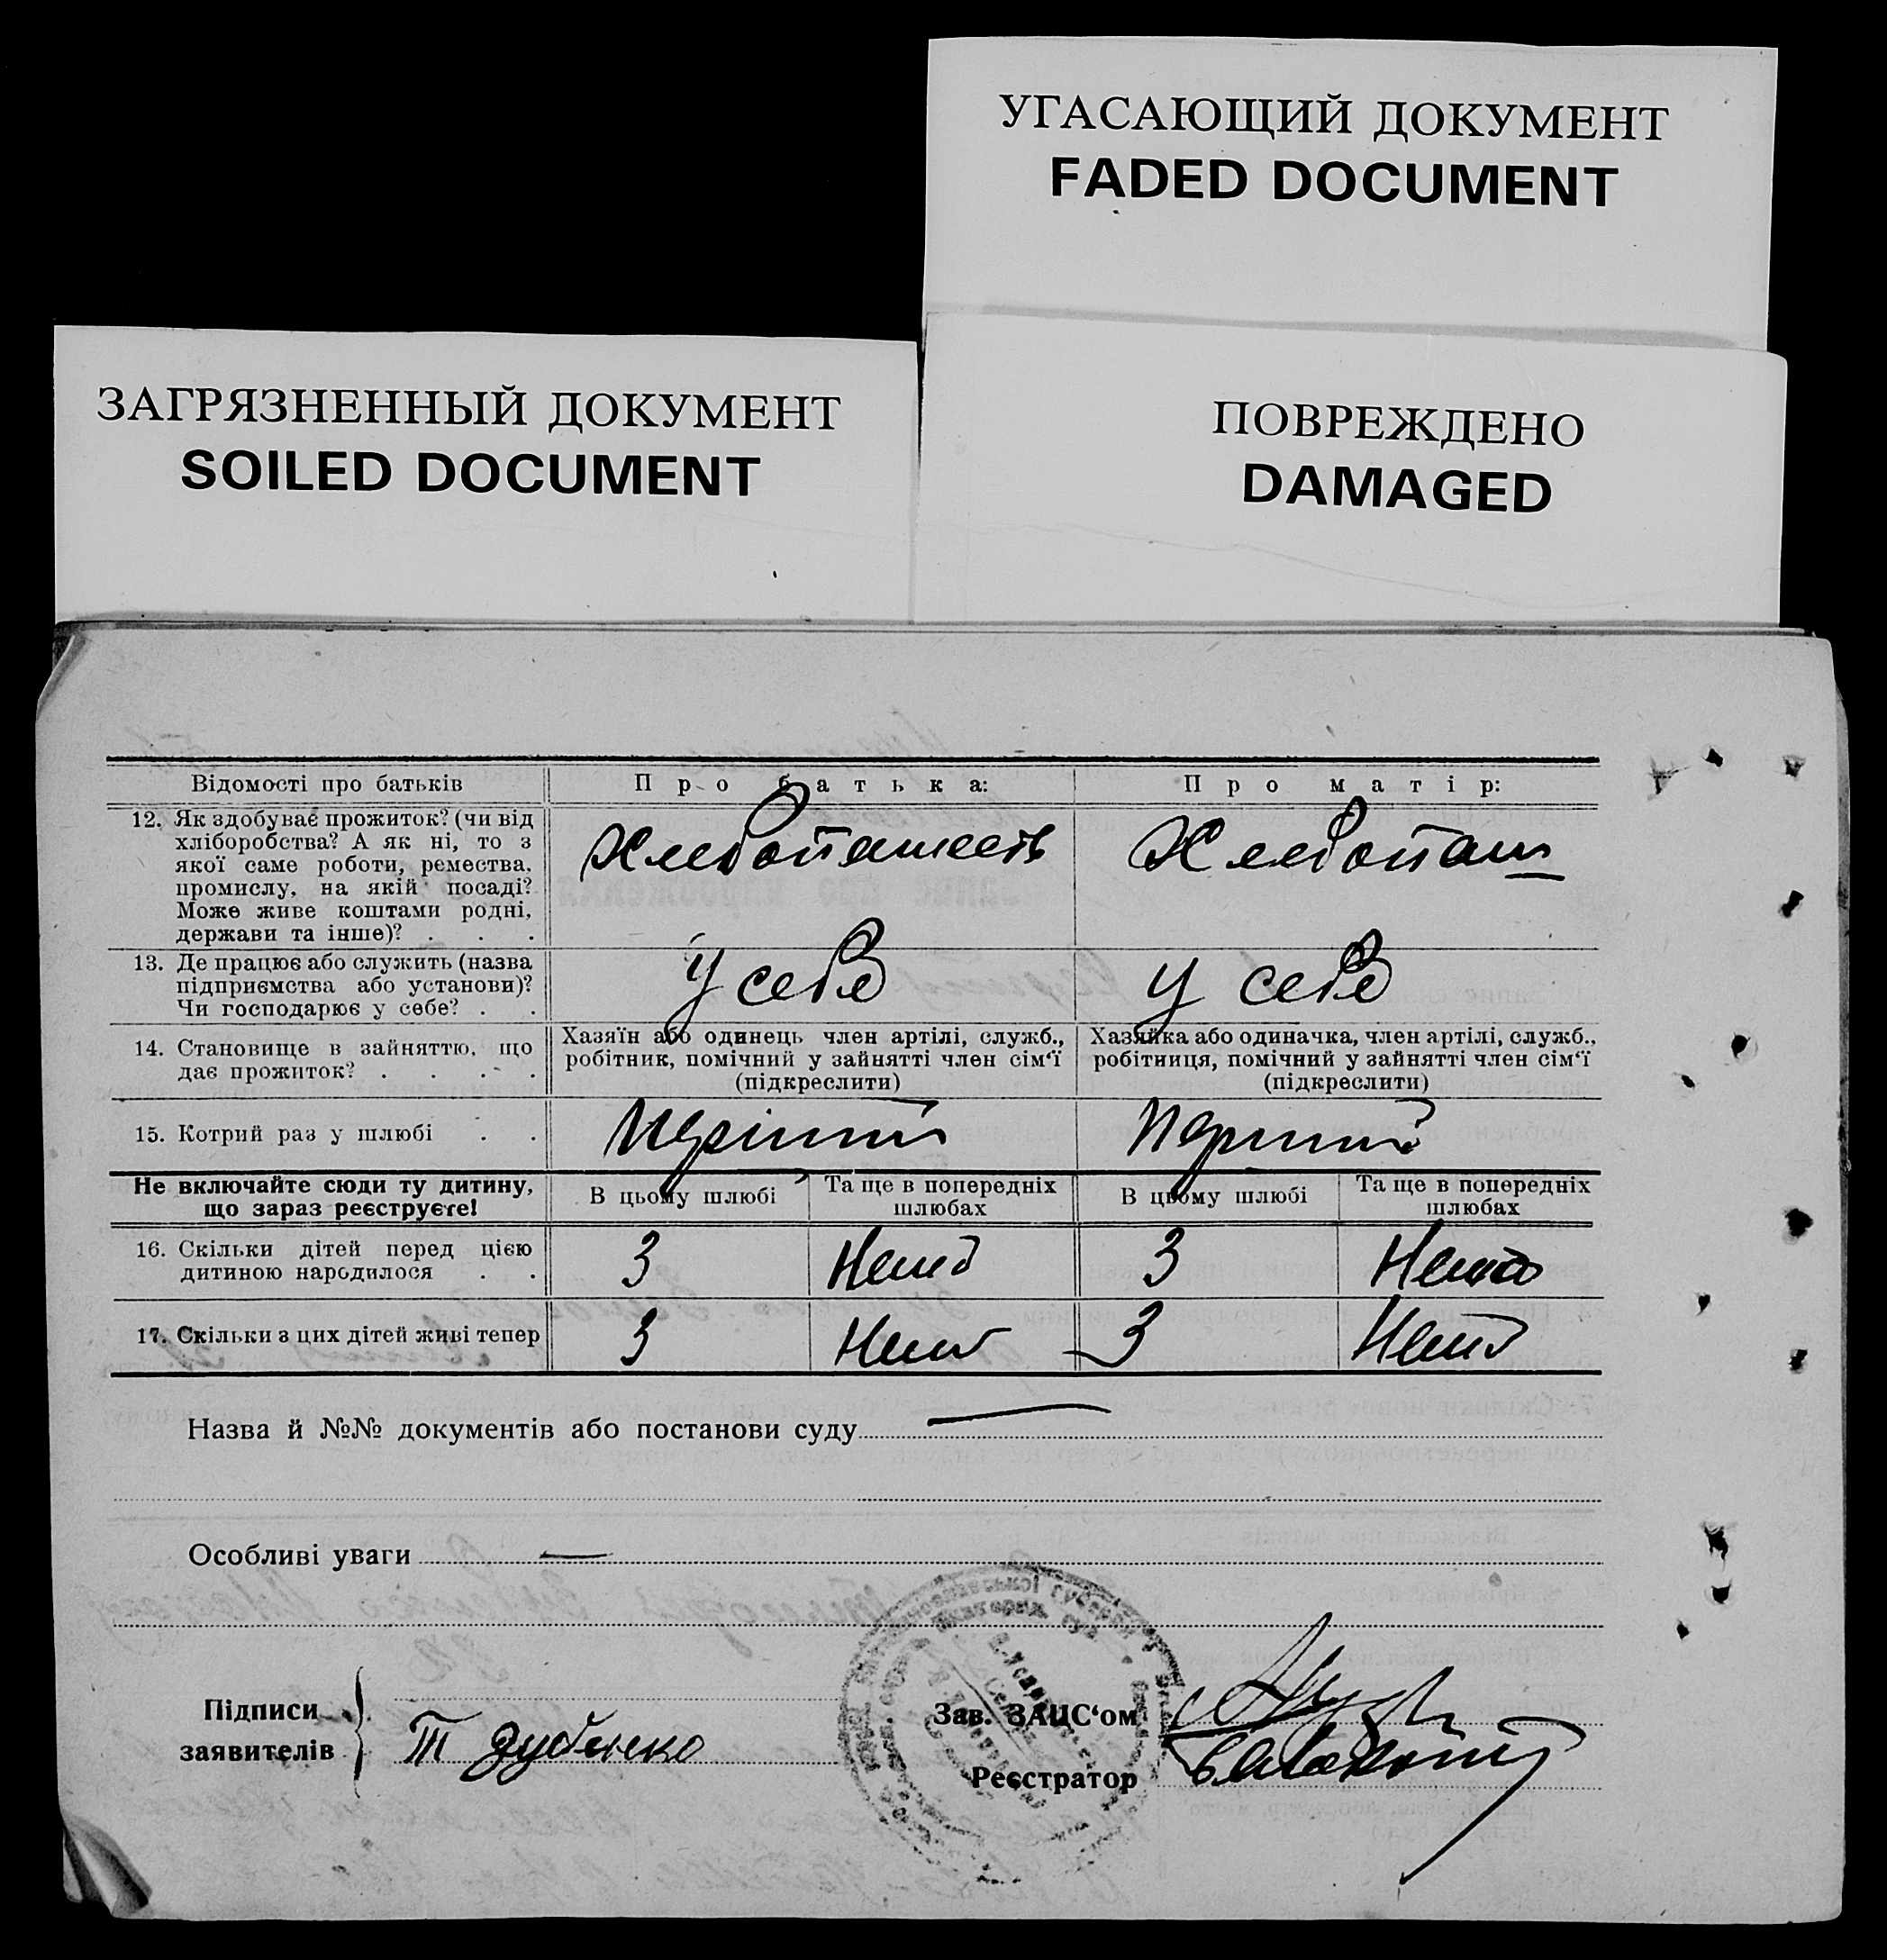 УГАСАЮЩИЙ ДОКУМЕНТ
FADED DOCUMENT
ЗАГРЯЗНЕННЫЙ ДОКУМЕНТ
SOILED DOCUMENT
ПОВРЕЖДЕНО
DAMAGED
Відомості про батьків
Про батька:
Про матір:
12. Як здобуває прожиток? (чи від
хліборобства? А як ні, то з
якої саме роботи, ремества,
промислу, на якій посаді?
Може живе коштами родні,
держави та інше)? . . .
Хлебопашест
Хлебопаш
13. Де працює або служить (назва
підприємства або установи)?
Чи господарює у себе? . .
У себе
У себе
14. Становище в зайняттю, що
дає прожиток? . . . .
Хазяїн або одинець член артілі, служб.,
робітник, помічний у зайнятті член сім'ї
(підкреслити)
Хазяйка або одиначка, член артілі, служб.,
робітниця, помічний у зайнятті член сім'ї
(підкреслити)
15. Котрий раз у шлюбі . .
Перший
Перший
Не включайте сюди ту дитину,
що зараз реєструєте!
В цьому шлюбі
Та ще в попередніх
шлюбах
В цьому шлюбі
Та ще в попередніх
шлюбах
16. Скільки дітей перед цією
дитиною народилося . .
3
3
17. Скільки з цих дітей живі тепер
3
3
Назва й №№ документів або постанови суду
Особливі уваги
Підписи
заявителів
Т Дубенко
Зав. ЗАЦС'ом
Реєстратор